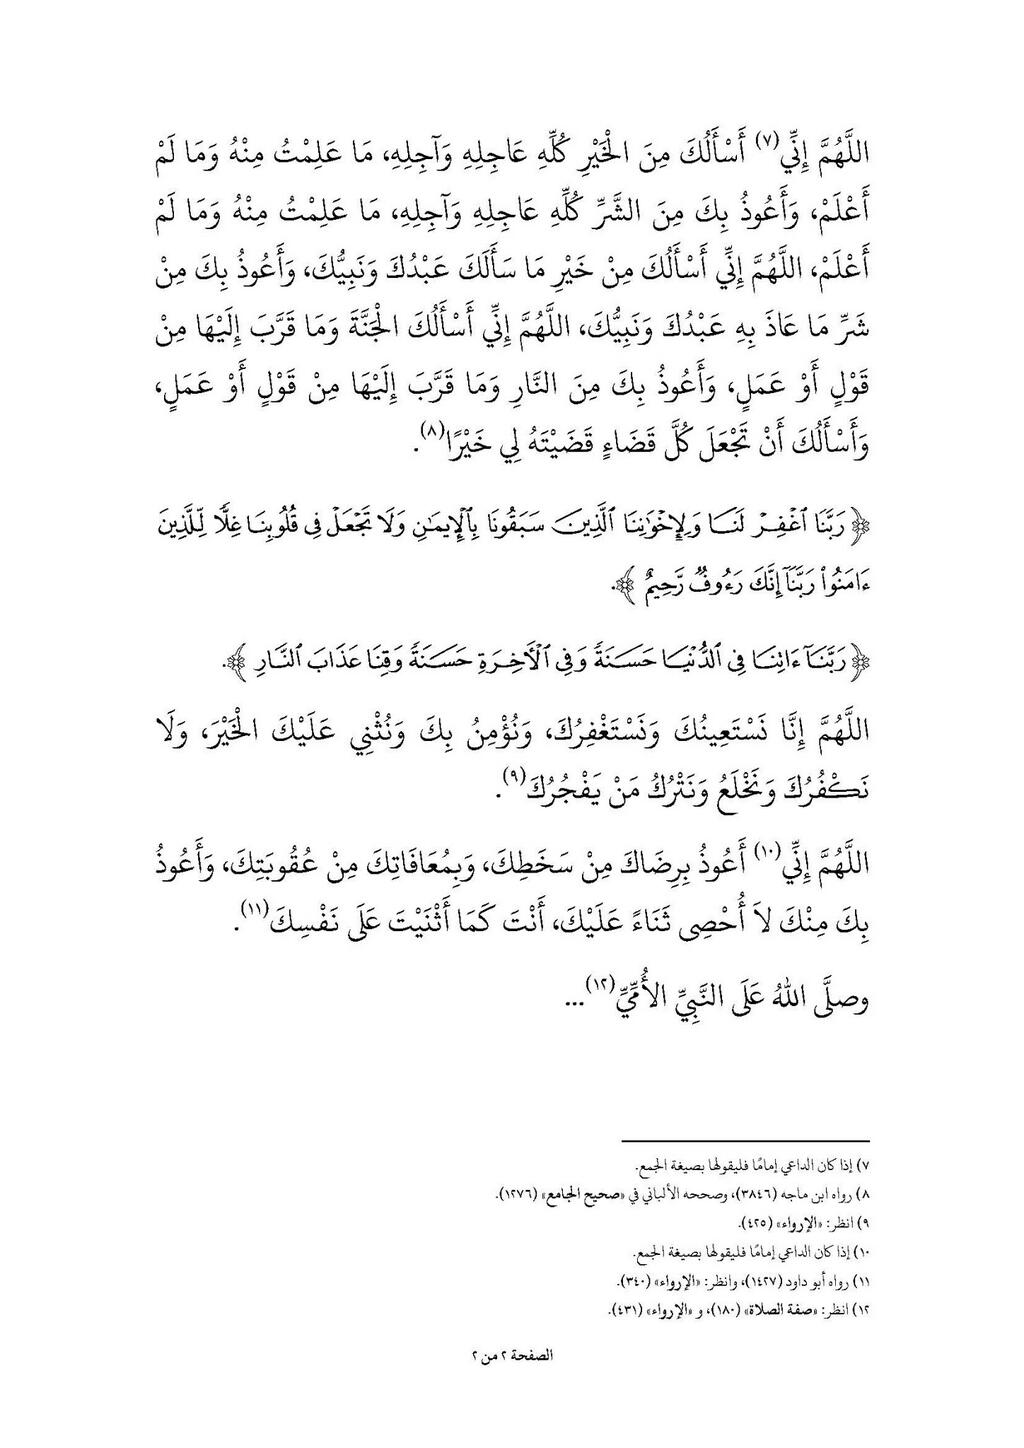 اللَّهُمَّ إِنِّي(٧) أَسْأَلُكَ مِنَ الْخَيْرِ كُلِّهِ عَاجِلِهِ وَآجِلِهِ، مَا عَلِمْتُ مِنْهُ وَمَا لَمْ
أَعْلَمْ، وَأَعُوذُ بِكَ مِنَ الشَّرِّ كُلِّهِ عَاجِلِهِ وَآجِلِهِ، مَا عَلِمْتُ مِنْهُ وَمَا لَمْ
أَعْلَمْ، اللَّهُمَّ إِنِّي أَسْأَلُكَ مِنْ خَيْرِ مَا سَأَلَكَ عَبْدُكَ وَنَبِيُّكَ، وَأَعُوذُ بِكَ مِنْ
شَرِّ مَا عَاذَ بِهِ عَبْدُكَ وَنَبِيُّكَ، اللَّهُمَّ إِنِّي أَسْأَلُكَ الْجَنَّةَ وَمَا قَرَّبَ إِلَيْهَا مِنْ
قَوْلٍ أَوْ عَمَلٍ، وَأَعُوذُ بِكَ مِنَ النَّارِ وَمَا قَرَّبَ إِلَيْهَا مِنْ قَوْلٍ أَوْ عَمَلٍ،
وَأَسْأَلُكَ أَنْ تَجْعَلَ كُلَّ قَضَاءٍ قَضَيْتَهُ لِي خَيْرًا(٨).
﴿رَبَّنَا ٱغْفِرْ لَنَا وَلِإِخْوَٰنِنَا ٱلَّذِينَ سَبَقُونَا بِٱلْإِيمَٰنِ وَلَا تَجْعَلْ فِى قُلُوبِنَا غِلًّا لِّلَّذِينَ
ءَامَنُوا۟ رَبَّنَآ إِنَّكَ رَءُوفٌ رَّحِيمٌ﴾.
﴿رَبَّنَآ ءَاتِنَا فِى ٱلدُّنْيَا حَسَنَةً وَفِى ٱلْأَخِرَةِ حَسَنَةً وَقِنَا عَذَابَ ٱلنَّارِ﴾.
اللَّهُمَّ إِنَّا نَسْتَعِينُكَ وَنَسْتَغْفِرُكَ، وَنُؤْمِنُ بِكَ وَنُثْنِي عَلَيْكَ الْخَيْرَ، وَلَا
نَكْفُرُكَ وَنَخْلَعُ وَنَتْرُكُ مَنْ يَفْجُرُكَ(٩).
اللَّهُمَّ إِنِّي(١٠) أَعُوذُ بِرِضَاكَ مِنْ سَخَطِكَ، وَبِمُعَافَاتِكَ مِنْ عُقُوبَتِكَ، وَأَعُوذُ
بِكَ مِنْكَ لاَ أُحْصِى ثَنَاءً عَلَيْكَ، أَنْتَ كَمَا أَثْنَيْتَ عَلَى نَفْسِكَ(١١).
وصلَّى اللهُ عَلَى النَّبِيِّ الأُمِّيِّ(١٢)...
٧) إذا كان الداعي إمامًا فليقولها بصيغة الجمع.
٨) رواه ابن ماجه (٣٨٤٦)، وصححه الألباني في «صحيح الجامع» (١٢٧٦).
٩) انظر: «الإرواء» (٤٢٥).
١٠) إذا كان الداعي إمامًا فليقولها بصيغة الجمع.
١١) رواه أبو داود (١٤٢٧)، وانظر: «الإرواء» (٣٤٠).
١٢) انظر: «صفة الصلاة» (١٨٠)، و «الإرواء» (٤٣١).
الصفحة ٢ من ٢